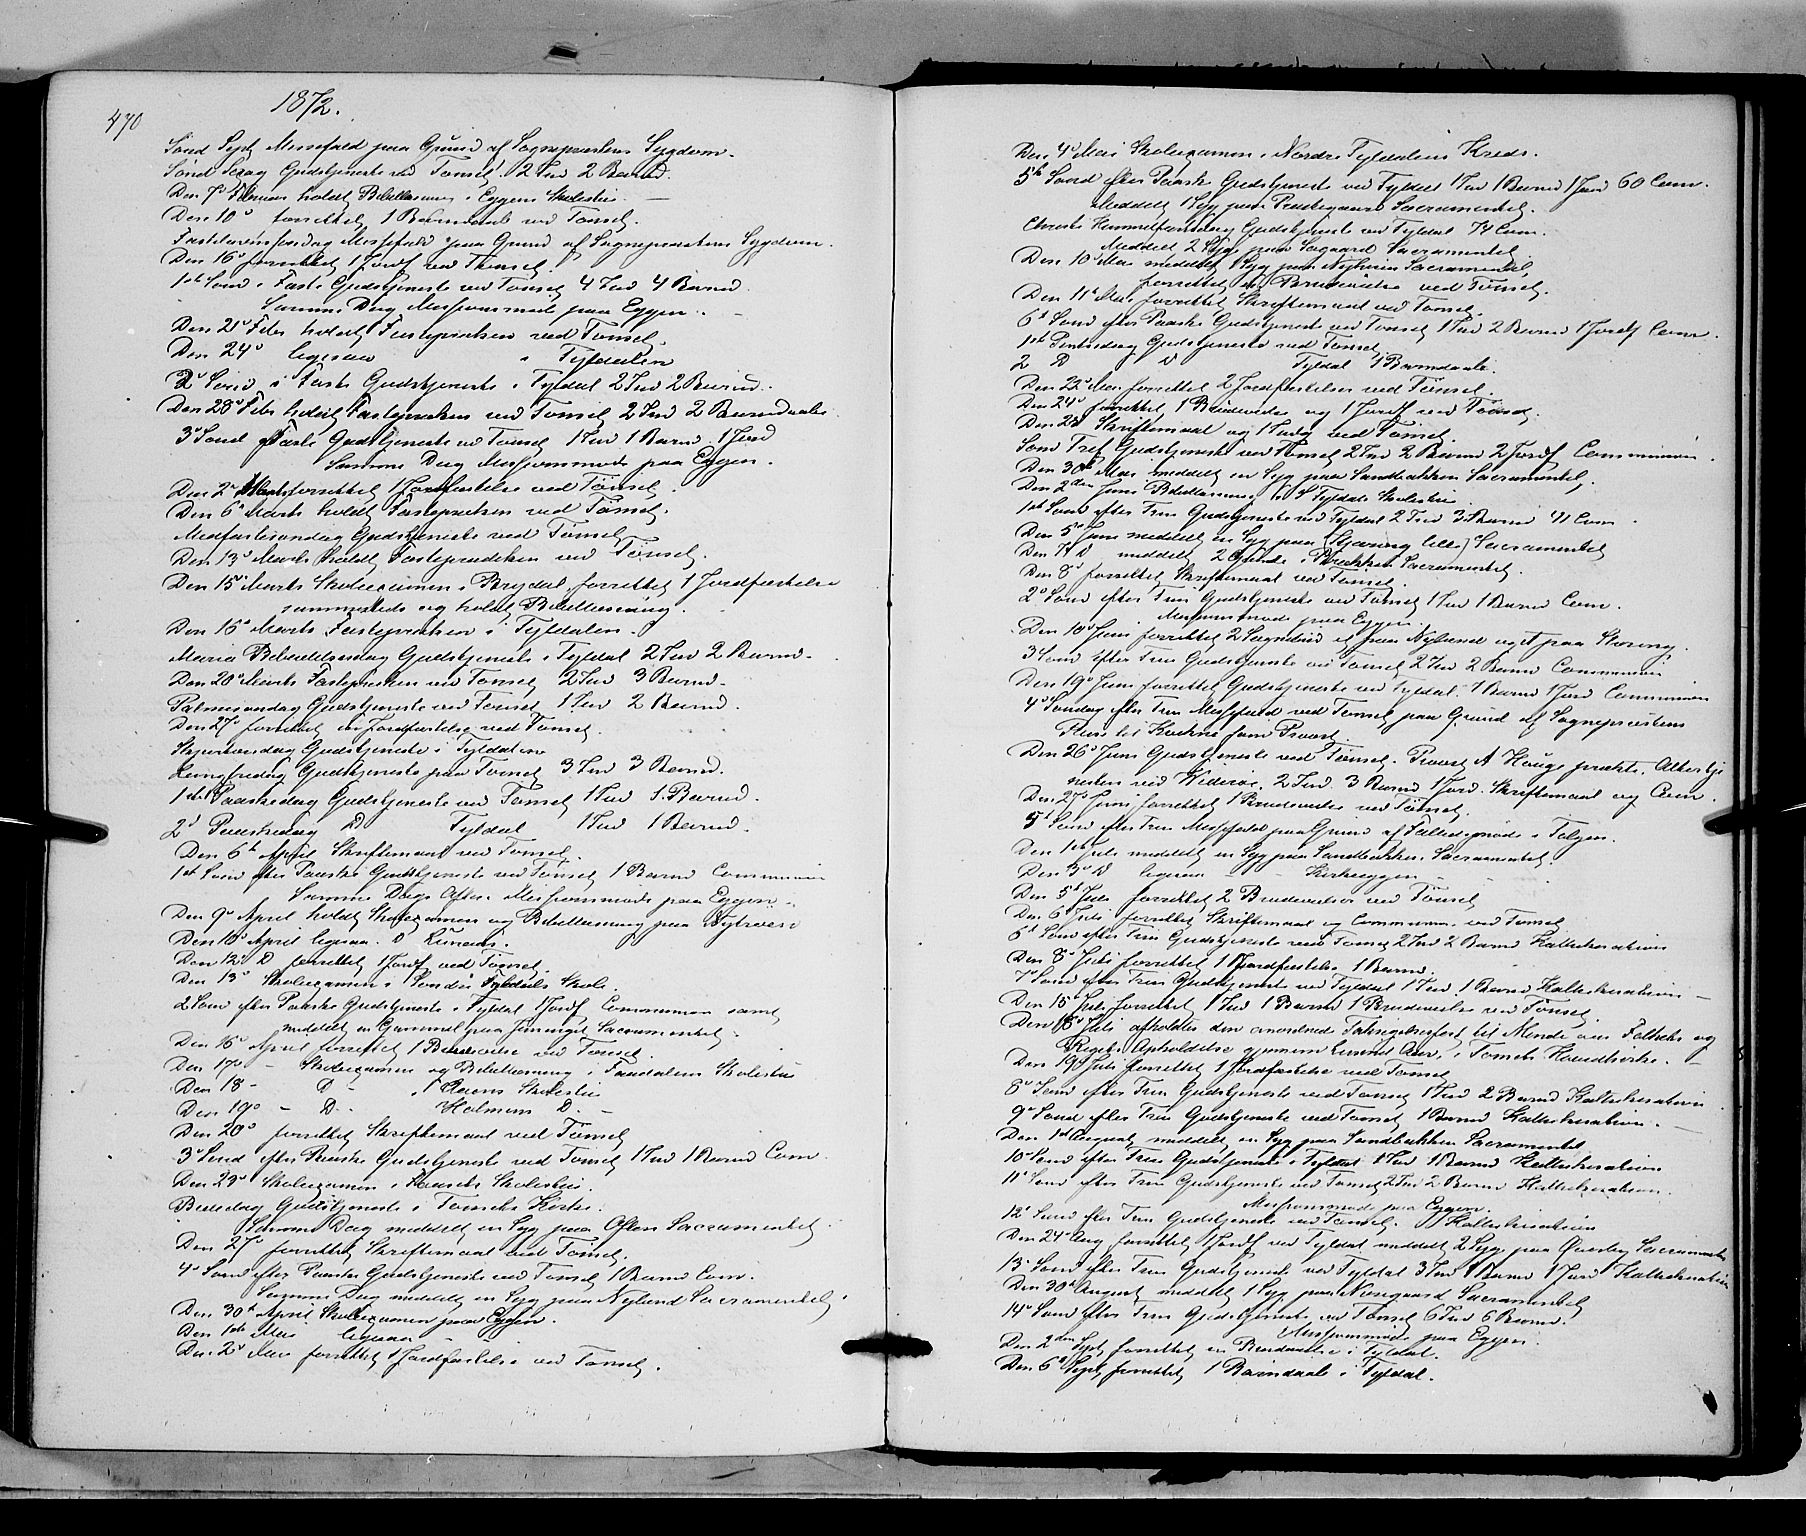 470
1872.
Sønd Sept Messefald paa Grund af Sognepræstens Sygdom.
Sønd Sexag Gudstjeneste ved Tønset. 2 Ind 2 Barnd.
Den 7d Februar holdt Bibellæsning i Eggens Skolestue.
Den 10d forrettet 1 Barnedaab ved Tønset.
Fastelavnssøndag Messefald paa Grund af Sognepræstens Sygdom.
Den 16d forrettet 1 Jordf ved Tønset.
1ste Sønd i Faste Gudstjeneste ved Tønset 4 Ind 4 Barnd.
Samme Dag Missionsmøde paa Eggen.
Den 21d Febr holdt Fasteprædiken ved Tønset.
Den 24d ligesaa i Tyldalen
2d Sønd i Faste Gudstjeneste i Tyldal 2 Ind 2 Barnd.
Den 28d Febr holdt Fasteprædiken ved Tønset 2 Ind 2 Barndaabe
3d Sønd i Faste Gudstjeneste ved Tønset 1 Ind 1 Barnd 1 Jord
Samme Dag Missionsmøde paa Eggen.
Den 2d Marts forrettet 1 Jordfæstelse ved Tønset.
Den 6d Marts holdt Fasteprædiken ved Tønset.
Midfastesøndag Gudstjeneste ved Tønset
Den 13d Marts holdt Fasteprædiken ved Tønset.
Den 15d Marts Skoleexamen i Brydal, forrettet 1 Jordfæstelse
sammesteds og holdt Bibellæsning.
Den 16d Marts Fasteprædiken i Tyldalen.
Maria Bebudelsesdag Gudstjeneste i Tyldal 2 Ind 2 Barnd.
Den 20d Marts Fasteprædiken ved Tønset 2 Ind 3 Barnd.
Palmesøndag Gudstjeneste ved Tønset 1 Ind 2 Barnd.
Den 27d forrettet en Jordfæstelse ved Tønset.
Skjærtorsdag Gudstjeneste i Tyldalen
Langfredag Gudstjeneste paa Tønset 3 Ind 3 Barnd.
1ste Paaskedag Gudstjeneste ved Tønset 1 Ind 1 Barnd.
2d Paaskedag D Tyldal 1 Ind 1 Barnd.
Den 6te April Skriftemaal ved Tønset.
1ste Sønd efter Paaske Gudstjeneste ved Tønset 1 Barnd Communion
Samme Dags Aften Missionsmøde paa Eggen.
Den 9d April holdt Skoleexamen og Bibellæsning paa
Den 10d April ligesaa D
Den 12d D forrettet 1 Jordf ved Tønset.
Den 13d Skoleexamen i Søndre Tyldals Skole.
2 Sønd efter Paaske Gudstjeneste i Tyldal 1 Jordf Communion samt
meddelt en Gammel paa Sacramentet.
Den 16d April forrettet 1 Brudevielse ved Tønset.
Den 17d – Skoleexamen og Bibellæsning i Faadalens Skolestue
Den 18 – D Skolestue
Den 19d – D Holmens D.
Den 20d forrettet Skriftemaal ved Tønset
3d Sønd efter Paaske Gudstjeneste ved Tønset 1 Ind 1 Barnd Com.
Den 23d Skoleexamen i Skolestue.
Bededag Gudstjeneste i Tønsets Kirke.
Samme Dag meddelt en Syg paa Sacramentet
Den 27d forrettet Skriftemaal ved Tønset.
4d Sønd efter Paaske Gudstjeneste ved Tønset 1 Barnd Com.
Samme Dag meddelt en Syg paa Nylend Sacramentet
Den 30d April Skoleexamen paa Eggen.
Den 1ste Mai ligesaa
Den 2d Mai forrettet 1 Jordfæstelse ved Tønset.
Den 4d Mai Skoleexamen i Nordre Tyldalens Kreds.
5te Sønd efter Paaske Gudstjeneste ved Tyldal 1 Ind 1 Barnd 1 Jord 60 Com.
Meddelt 1 Syg paa Præstegaard Sacramentet.
Christi Himmelfartsdag Gudstjeneste ved Tyldal 74 Com.
Meddelt 2 Syge paa Søgaard Sacramentet
Den 10d Mai meddelt 1 Syg paa Sacramentet,
forrettet Brudevielse ved Tønset.
Den 11d Mai forrettet Skriftemaal ved Tønset.
6d Sønd efter Paaske Gudstjeneste ved Tønset 1 Ind 2 Barnd 1 Jordf Com.
1ste Pintsedag Gudstjeneste ved Tønset
2 D D Tyldal 1 Barndaab.
Den 22d Mai forrettet 2 Jordfæstelser ved Tønset.
Den 24d forrettet 1 Brudevielse og 1 Jordf ved Tønset.
Den 25d Skriftemaal og 1 Indg ved Tønset.
Sønd Tref Gudstjeneste ved Tønset 2 Ind 2 Barnd 2 Jordf Communion.
Den 30te Mai meddelt en Syg paa Sandbakken Sacramentet.
Den 2den Juni Bibellæsning i Tyldals Skolestue
1ste Sønd efter Trin Gudstjeneste ved Tyldal 2 Ind 3 Barnd 41 Com.
Den 5d Juni meddelt en Syg paa Sacramentet
Den 7d D meddelt 2 i Brækken Sacramentet.
Den 8d forrettet Skriftemaal ved Tønset.
2d Sønd efter Trin Gudstjeneste ved Tønset 1 Ind 1 Barnd Com.
Missionsmøde paa Eggen.
Den 10d Juni forrettet 2 Sognebud et paa Nylend og et paa
3 Sønd efter Trin Gudstjeneste ved Tønset 2 Ind 2 Barnd Communion
Den 19d Juni forrettet Gudstjeneste ved Tyldal. 1 Barnd 1 Jord Communion
4d Søndag efter Trin Messefald ved Tønset paa Grund af Sognepræstens
Provst.
Den 26d Juni Gudstjeneste ved Tønset. Provst A Hauge prækte. Altertje
nesten ved Widerøe. 2 Ind. 3 Barnd 1 Jord. Skriftemaal og Com.
Den 27d Juni forrettet 1 Brudevielse ved Tønset.
5d Sønd efter Trin Messefald paa Grund af Fællesmøde i Tolgen.
Den 1ste Juli meddelt en Syg paa Sandbakken Sacramentet.
Den 3d D ligesaa – Kirkeeggen –
Den 5d Juli forrettet 2 Brudevielser ved Tønset
Den 6 Juli forrettet Skriftemaal og Communion ved Tønset
6d Sønd efter Trin Gudstjeneste ved Tønset 2 Ind 2 Barnd Katechisation
Den 8d Juli forrettet 1 Jordfæstelse 1 Barnd.
7d Sønd efter Trin Gudstjeneste ved Tyldal 1 Ind 1 Barnd Katechisation
Den 15d Juli forrettet 1 Ind 1 Barnd 1 Brudevielse ved Tønset.
Den 18d Juli afholdtes den anordnede Taksigelsesfest til Minde om Folkets og
Rigets Opholdelse gjennem tusind Aar, i Tønsets Hovedkirke.
Den 19d Juli forrettet 1 Jordfæstelse ved Tønset
8d Sønd efter Trin Gudstjeneste ved Tønset 1 Ind 2 Barnd Katechisation
9d Sønd efter Trin Gudstjeneste ved Tønset 1 Barnd Katechisation.
Den 1st August meddelt en Syg paa Sandbakken Sacramentet
10d Sønd efter Trin Gudstjeneste i Tyldal 1 Ind 1 Barnd Katechisation
11d Sønd efter Trin Gudstjeneste ved Tønset 2 Ind 2 Barnd Katechisation.
Missionsmøde paa Eggen.
12d Sønd efter Trin Gudstjeneste ved Tønset. Katechisation
Den 24d Aug forrettet 1 Jordf ved Tyldal meddelt 2 Syge paa Øverby Sacramentet
13d Sønd efter Trin Gudstjeneste ved Tyldal 3 Ind 1 Barnd 1 Jord Katechisation
Den 30d August meddelt 1 Syg paa Sacramentet
14d Sønd efter Trin Gudstjeneste ved Tønset 6 Ind 6 Barnd.
Missionsmøde paa Eggen.
Den 2den Sept forrettet en Brudevielse i Tyldal.
Den 6d Sept forrettet 1 Barndaab i Tyldal.